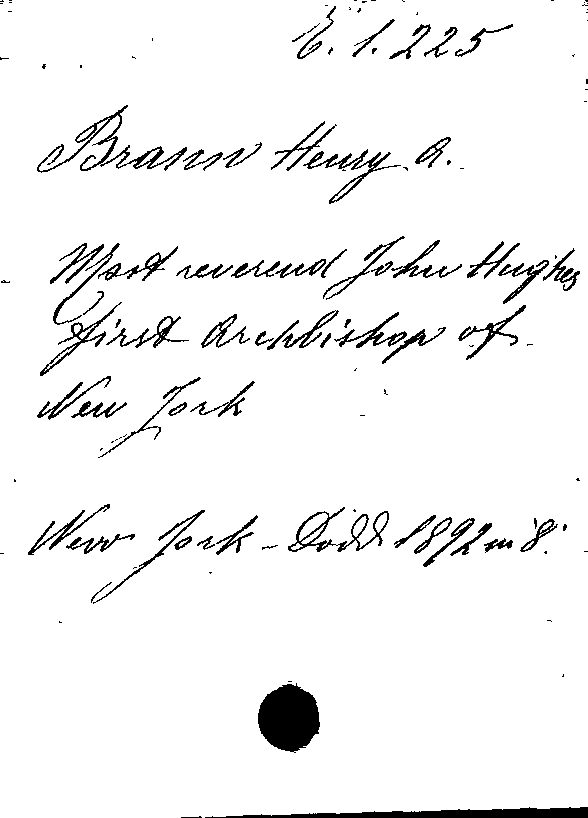 E. 1. 225
Brann Henry A.
Most reverend John Hughes
first Archbishop of
New York
New York - Dodd 1892 in 8.